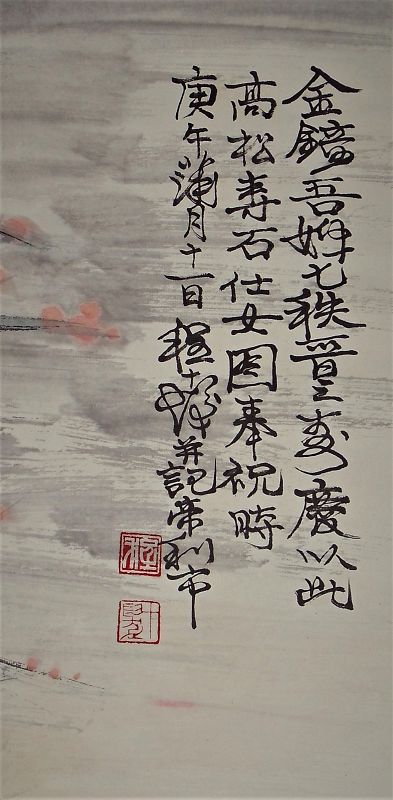 金鐀吾姊七秩晉三壽慶以此
高松壽石仕女圖奉祝時
庚午蒲月十一日程十髮并記帝利市
程
十髮